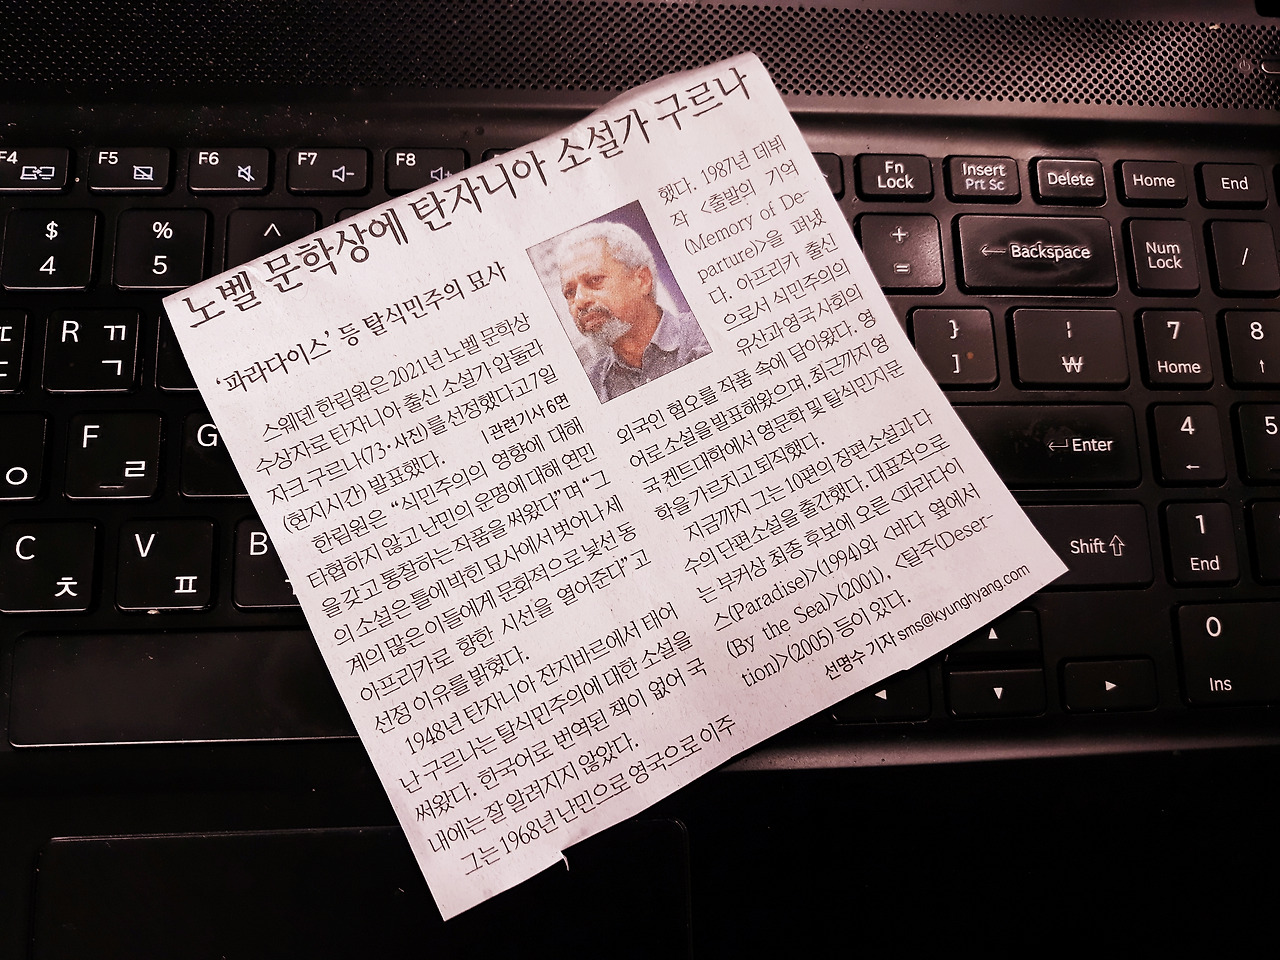 노벨 문학상에 탄자니아 소설가 구르나
‘파라다이스’ 등 탈식민주의 묘사
스웨덴 한림원은 2021년 노벨 문학상
수상자로 탄자니아 출신 소설가 압둘라
자크 구르나(73·사진)를 선정했다고 7일
(현지시간) 발표했다. | 관련기사 6면
한림원은 “식민주의의 영향에 대해
타협하지 않고 난민의 운명에 대해 연민
을 갖고 통찰하는 작품을 써왔다”며 “그
의 소설은 틀에 박힌 묘사에서 벗어나 세
계의 많은 이들에게 문화적으로 낯선 동
아프리카로 향한 시선을 열어준다”고
선정 이유를 밝혔다.
1948년 탄자니아 잔지바르에서 태어
난 구르나는 탈식민주의에 대한 소설을
써왔다. 한국어로 번역된 책이 없어 국
내에는 잘 알려지지 않았다.
그는 1968년 난민으로 영국으로 이주
했다. 1987년 데뷔
작 <출발의 기억
(Memory of De-
parture)>을 펴냈
다. 아프리카 출신
으로서 식민주의의
유산과 영국 사회의
외국인 혐오를 작품 속에 담아왔다. 영
어로 소설을 발표해왔으며, 최근까지 영
국 켄트대학에서 영문학 및 탈식민지문
학을 가르치고 퇴직했다.
지금까지 그는 10편의 장편소설과 다
수의 단편소설을 출간했다. 대표작으로
는 부커상 최종 후보에 오른 <파라다이
스(Paradise)>(1994)와 <바다 옆에서
(By the Sea)>(2001), <탈주(Deser-
tion)>(2005) 등이 있다.
선명수 기자 sms@kyunghyang.com
F4
F5
F6
F7
F8
Fn Lock
Insert
Prt Sc
Delete
Home
End
$
4
%
5
^
+
=
← Backspace
Num Lock
/
R ㄲ
ㄱ
}
]
¦
₩
7
Home
8
↑
ㅇ
F
ㄹ
G
← Enter
4
←
5
C
ㅊ
V
ㅍ
B
Shift ⇧
1
End
▲
0
Ins
◄
▼
►